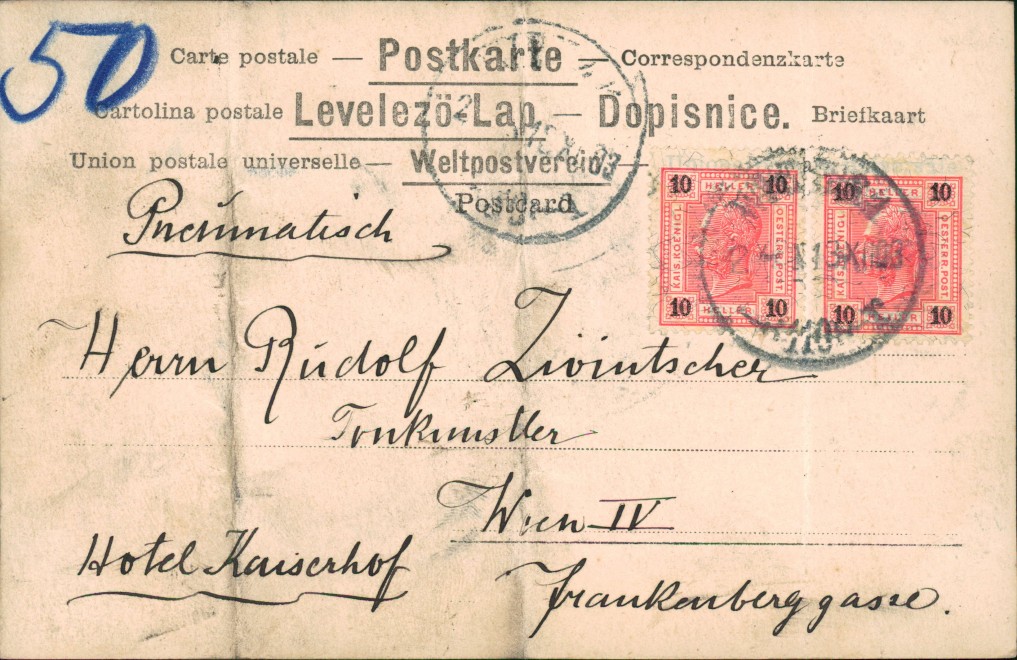 50
Carte postale — Postkarte — Correspondenzkarte
Cartolina postale Levelezö-Lap. — Dopisnice. Briefkaart
Union postale universelle — Weltpostverein
Postcard
Pneumatisch
10 HELLER 10
KAIS. KOENIGL. OESTERR. POST
10 HELLER 10
10 HELLER 10
KAIS. KOENIGL. OESTERR. POST
10 HELLER 10
13 XII 03
Herrn Rudolf Zwintscher
Tonkünstler
Wien IV
Hotel Kaiserhof
Frankenberggasse.